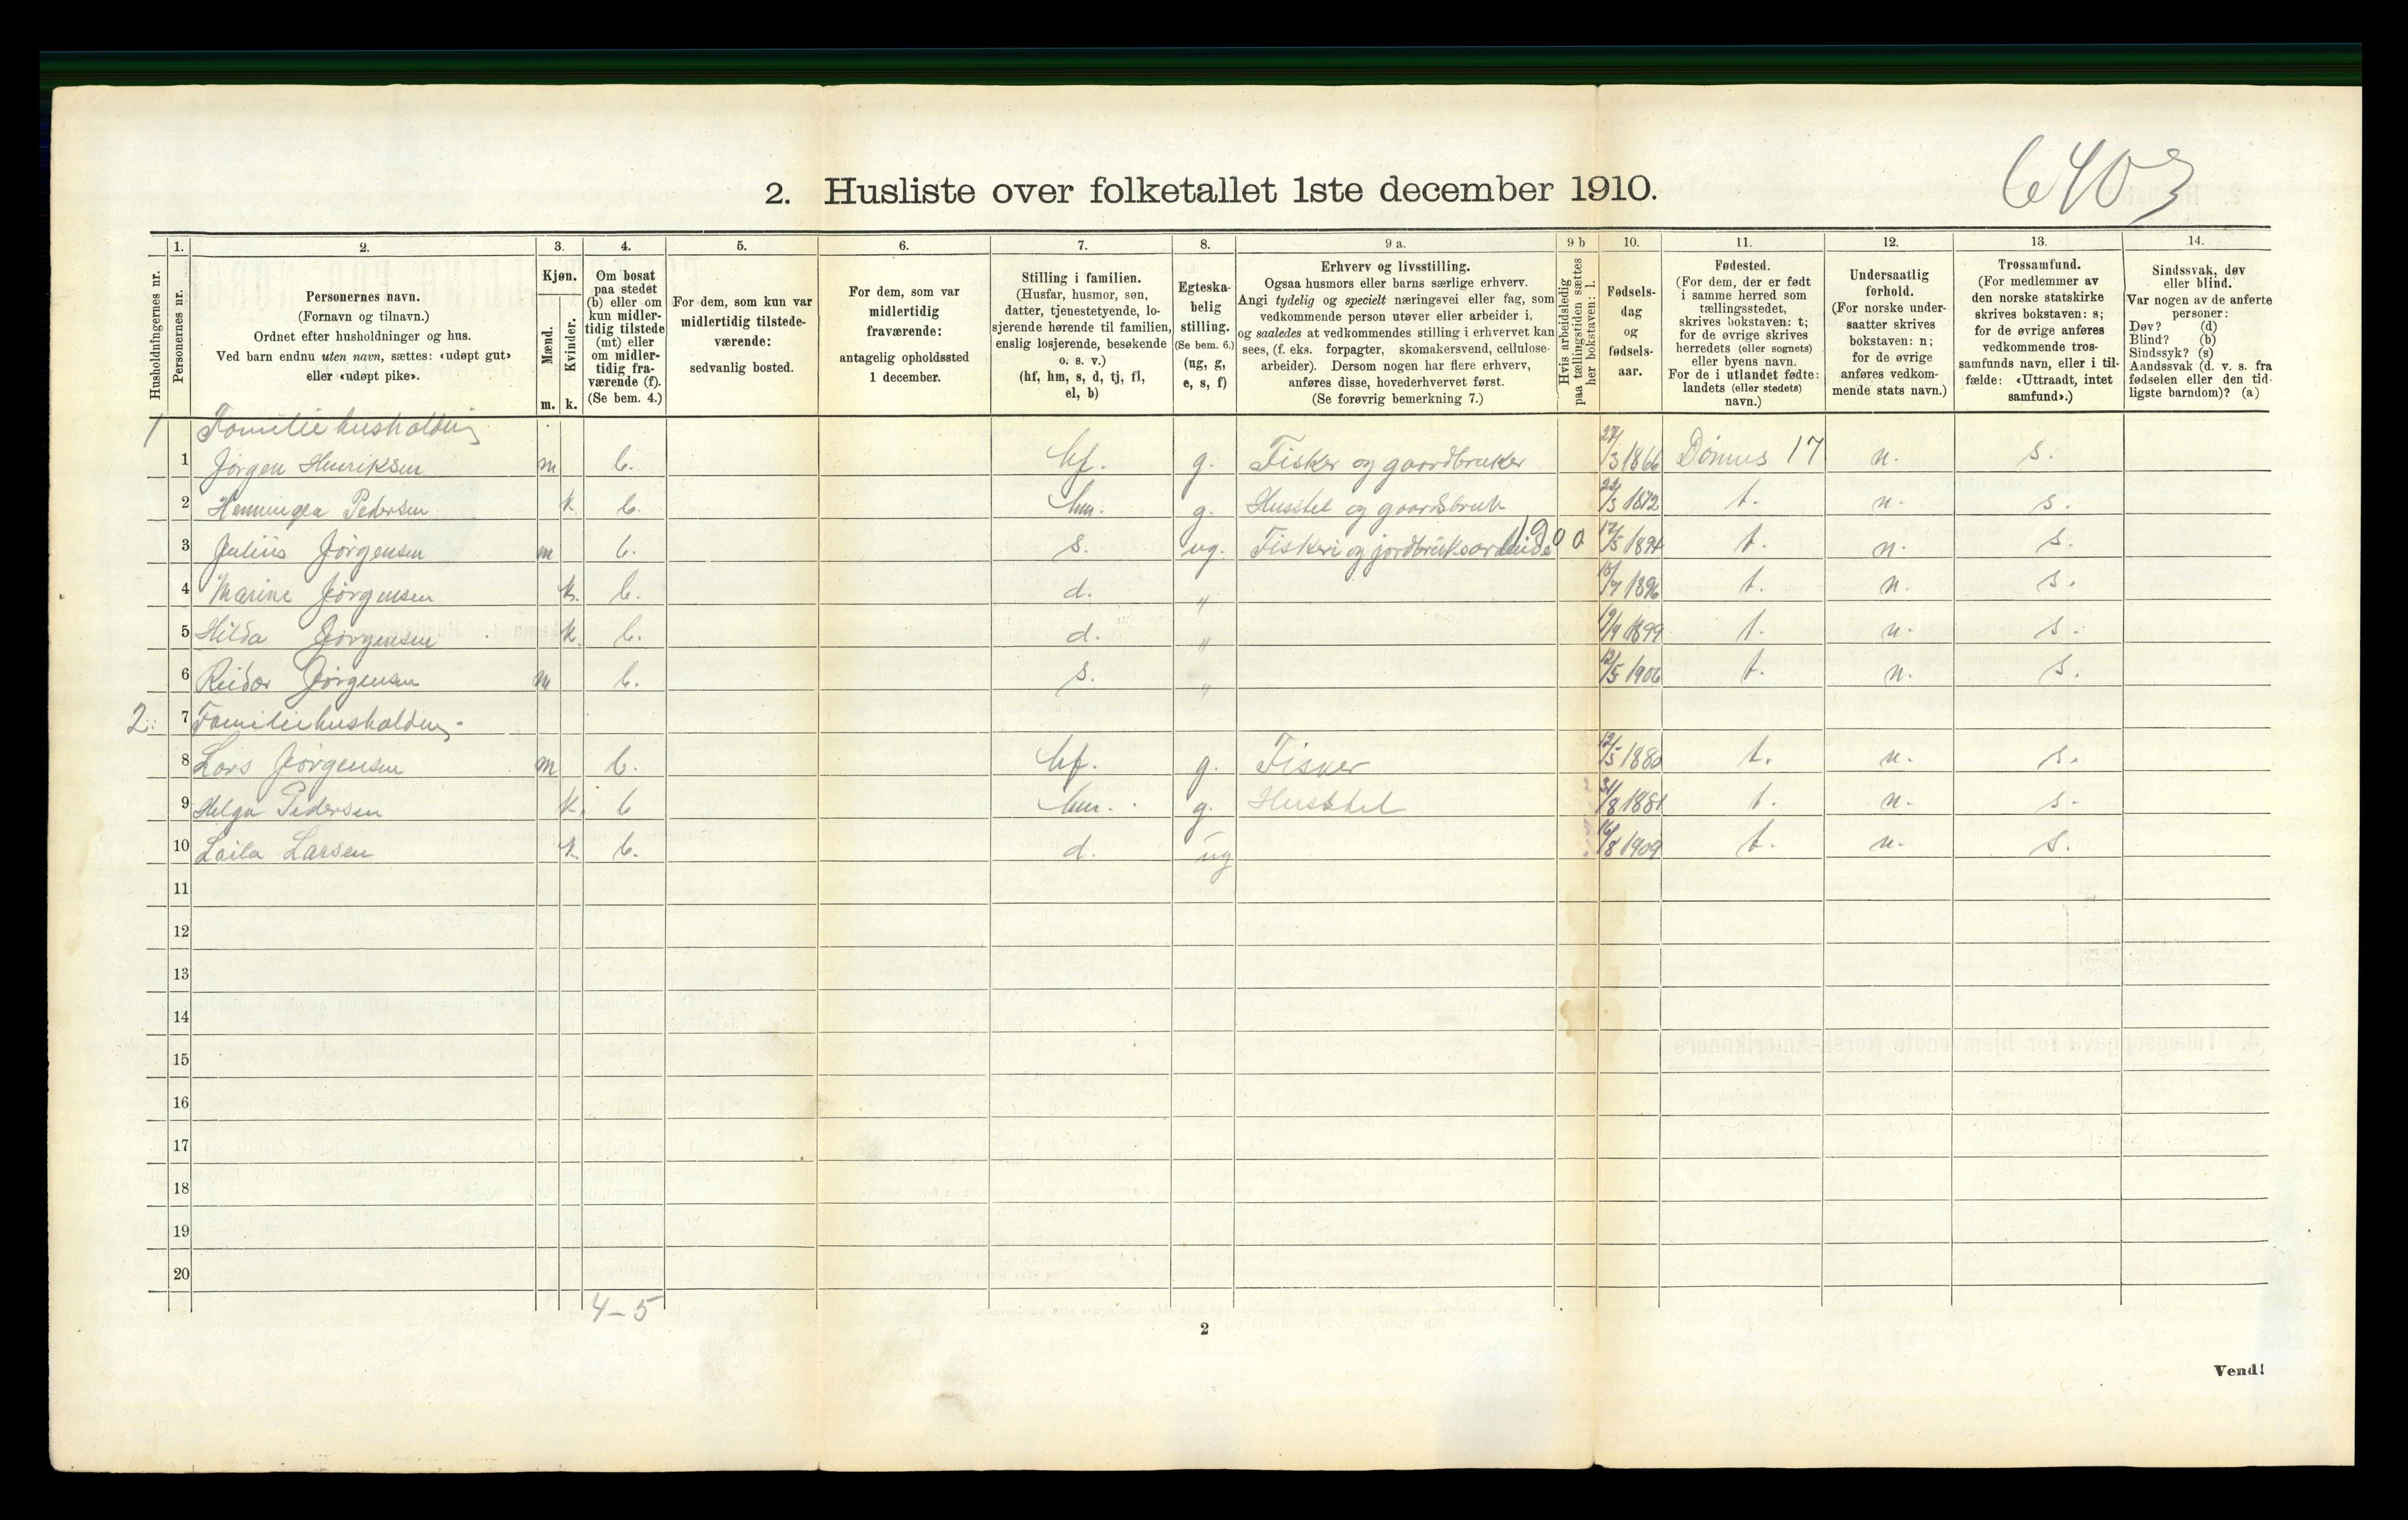 6403
2. Husliste over folketallet 1ste december 1910.
Husholdningernes nr.
1. Personernes nr.
2. Personernes navn.
(Fornavn og tilnavn.)
Ordnet efter husholdninger og hus.
Ved barn endnu uten navn, sættes: «udøpt gut»
eller «udøpt pike».
3. Kjøn.
Mænd. Kvinder.
m. k.
4. Om bosat
paa stedet
(b) eller om
kun midler-
tidig tilstede
(mt) eller
om midler-
tidig fra-
værende (f).
(Se bem. 4.)
5. For dem, som kun var
midlertidig tilstede-
værende:
sedvanlig bosted.
6. For dem, som var
midlertidig
fraværende:
antagelig opholdssted
1 december.
7. Stilling i familien.
(Husfar, husmor, søn,
datter, tjenestetyende, lo-
sjerende hørende til familien,
enslig losjerende, besøkende
o. s. v.)
(hf, hm, s, d, tj, fl,
el, b)
8. Egteska-
belig
stilling.
(Se bem. 6.)
(ug, g,
e, s, f)
9 a. Erhverv og livsstilling.
Ogsaa husmors eller barns særlige erhverv.
Angi tydelig og specielt næringsvei eller fag, som
vedkommende person utøver eller arbeider i,
og saaledes at vedkommendes stilling i erhvervet kan
sees, (f. eks. forpagter, skomakersvend, cellulose-
arbeider). Dersom nogen har flere erhverv,
anføres disse, hovederhvervet først.
(Se forøvrig bemerkning 7.)
9 b Hvis arbeidsledig
paa tællingstiden sættes
her bokstaven: l.
10. Fødsels-
dag
og
fødsels-
aar.
11. Fødested.
(For dem, der er født
i samme herred som
tællingsstedet,
skrives bokstaven: t;
for de øvrige skrives
herredets (eller sognets)
eller byens navn.
For de i utlandet fødte:
landets (eller stedets)
navn.)
12. Undersaatlig
forhold.
(For norske under-
saatter skrives
bokstaven: n;
for de øvrige
anføres vedkom-
mende stats navn.)
13. Trossamfund.
(For medlemmer av
den norske statskirke
skrives bokstaven: s;
for de øvrige anføres
vedkommende tros-
samfunds navn, eller i til-
fælde: «Uttraadt, intet
samfund».)
14. Sindssvak, døv
eller blind.
Var nogen av de anførte
personer:
Døv? (d)
Blind? (b)
Sindssyk? (s)
Aandssvak (d. v. s. fra
fødselen eller den tid-
ligste barndom)? (a)
1 Familiehusholdning
1 Jørgen Henriksen m b. hf. g. Fisker og gaardbruker 27/3 1866 Dønnes 17 n. s.
2 Henningea Pedersen k b. hm. g. Husstel og gaardsbruk 22/3 1872 t. n. s.
3 Julius Jørgensen m b. s. ug. Fiskeri og jordbruksarbeide 1900 12/5 1894 t. n. s.
4 Marine Jørgensen k. b. d. " 15/7 1896 t. n. s.
5 Hilda Jørgensen k. b. d. " 19/9 1899 t. n. s.
6 Reidar Jørgensen m b. s. " 12/5 1906 t. n. s.
2. 7 Familiehusholdning
8 Lars Jørgensen m b. hf. g. Fisker 12/5 1880 t. n. s.
9 Helga Pedersen k. b hm. g. Husstel 31/8 1881 t. n. s.
10 Laila Larsen k b. d. ug 16/8 1909 t. n. s.
11
12
13
14
15
16
17
18
19
20
4-5
2
Vend!